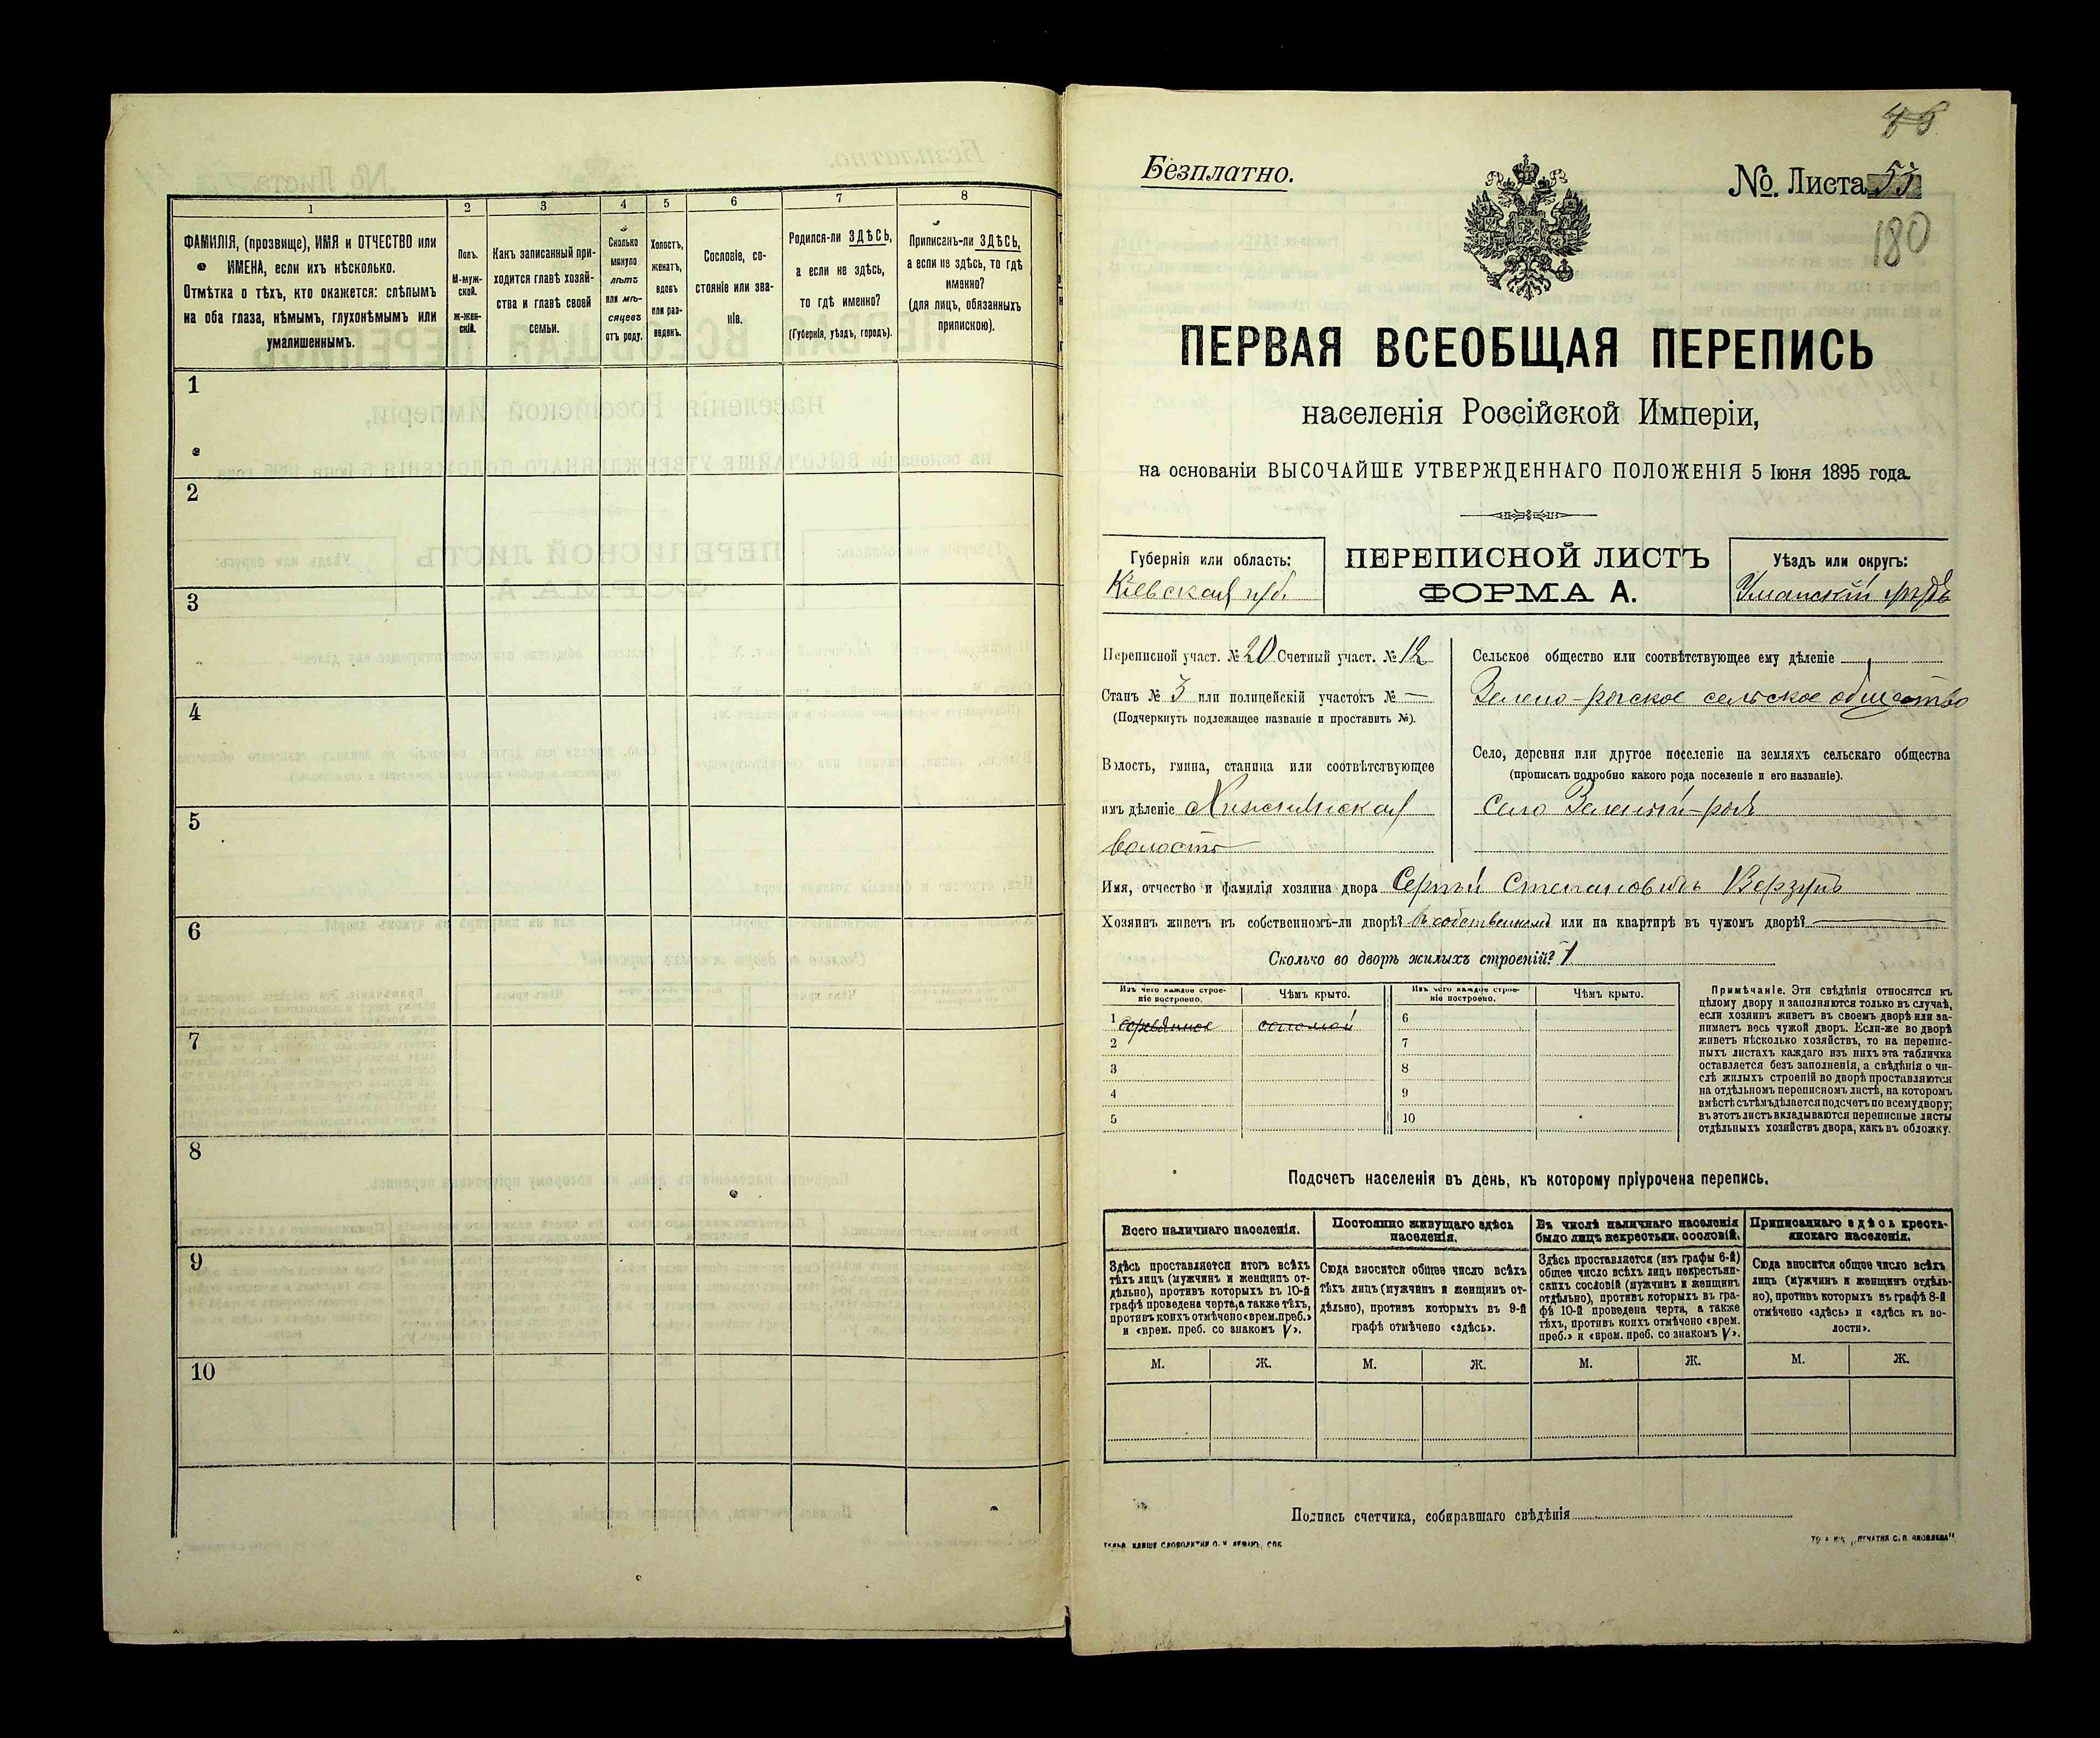 1
2
3
4
5
6
7
8
ФАМИЛІЯ, (прозвище), ИМЯ и ОТЧЕСТВО или
ИМЕНА, если ихъ нѣсколько.
Отмѣтка о тѣхъ, кто окажется: слѣпымъ
на оба глаза, нѣмымъ, глухонѣмымъ или
умалишеннымъ.
Полъ.
М-муж-
ской.
ж-жен-
скій.
Какъ записанный при-
ходится главѣ хозяй-
ства и главѣ своей
семьи.
Сколько
минуло
лѣтъ
или мѣ-
сяцевъ
отъ роду.
Холостъ,
женатъ,
вдовъ
или раз-
веденъ.
Сословіе, со-
стояніе или зва-
ніе.
Родился-ли ЗДѢСЬ,
а если не здѣсь,
то гдѣ именно?
(Губернія, уѣздъ, городъ).
Приписанъ-ли ЗДѢСЬ,
а если не здѣсь, то гдѣ
именно?
(для лицъ, обязанныхъ
припискою).
1
2
3
4
5
6
7
8
9
10
Безплатно.
№. Листа 53
180
ПЕРВАЯ ВСЕОБЩАЯ ПЕРЕПИСЬ
населенія Россійской Имперіи,
на основаніи ВЫСОЧАЙШЕ УТВЕРЖДЕННАГО ПОЛОЖЕНІЯ 5 Іюня 1895 года.
Губернія или область:
Кіевская губ.
ПЕРЕПИСНОЙ ЛИСТЪ
ФОРМА А.
Уѣздъ или округъ:
Уманскій уѣздъ
Переписной участ. № 20 Счетный участ. № 12
Станъ № 3 или полицейскій участокъ № —
(Подчеркнуть подлежащее названіе и проставить №).
Волость, гмина, станица или соотвѣтствующее
имъ дѣленіе
волость
Сельское общество или соотвѣтствующее ему дѣленіе
Зелено-рогское сельское общество
Село, деревня или другое поселеніе на земляхъ сельскаго общества
(прописать подробно какого рода поселеніе и его названіе).
Село Зеленый-рогъ
Имя, отчество и фамилія хозяина двора Сергѣй Степановичъ Верзунъ
Хозяинъ живетъ въ собственномъ-ли дворѣ? въ собственномъ или на квартирѣ въ чужомъ дворѣ? —
Сколько во дворѣ жилыхъ строеній? 1
Изъ чего каждое строе-
ніе построено.
Чѣмъ крыто.
Изъ чего каждое строе-
ніе построено.
Чѣмъ крыто.
1 деревянное соломой
2
3
4
5
6
7
8
9
10
Примѣчаніе. Эти свѣдѣнія относятся къ
цѣлому двору и заполняются только въ случаѣ,
если хозяинъ живетъ въ своемъ дворѣ или за-
нимаетъ весь чужой дворъ. Если-же во дворѣ
живетъ нѣсколько хозяйствъ, то на перепис-
ныхъ листахъ каждаго изъ нихъ эта табличка
оставляется безъ заполненія, а свѣдѣнія о чи-
слѣ жилыхъ строеній во дворѣ проставляются
на отдѣльномъ переписномъ листѣ, на которомъ
вмѣстѣ съ тѣмъ дѣлается подсчетъ по всему двору;
въ этотъ листъ вкладываются переписные листы
отдѣльныхъ хозяйствъ двора, какъ въ обложку.
Подсчетъ населенія въ день, къ которому пріурочена перепись.
Всего наличнаго населенія.
Здѣсь проставляется итогъ всѣхъ
тѣхъ лицъ (мужчинъ и женщинъ от-
дѣльно), противъ которыхъ въ 10-й
графѣ проведена черта, а также тѣхъ,
противъ коихъ отмѣчено «врем. преб.»
и «врем. преб. со знакомъ V».
Постоянно живущаго здѣсь
населенія.
Сюда вносится общее число всѣхъ
тѣхъ лицъ (мужчинъ и женщинъ от-
дѣльно), противъ которыхъ въ 9-й
графѣ отмѣчено «здѣсь».
Въ числѣ наличнаго населенія
было лицъ некрестьян. сословій.
Здѣсь проставляется (изъ графы 6-й)
общее число всѣхъ лицъ некрестьян-
скихъ сословій (мужчинъ и женщинъ
отдѣльно), противъ которыхъ въ гра-
фѣ 10-й проведена черта, а также
тѣхъ, противъ коихъ отмѣчено «врем.
преб.» и «врем. преб. со знакомъ V».
Приписаннаго здѣсь кресть-
янскаго населенія.
Сюда вносится общее число всѣхъ
лицъ (мужчинъ и женщинъ отдѣль-
но), противъ которыхъ въ графѣ 8-й
отмѣчено «здѣсь» и «здѣсь къ во-
лости».
М. Ж. М. Ж. М. Ж. М. Ж.
Подпись счетчика, собиравшаго свѣдѣнія